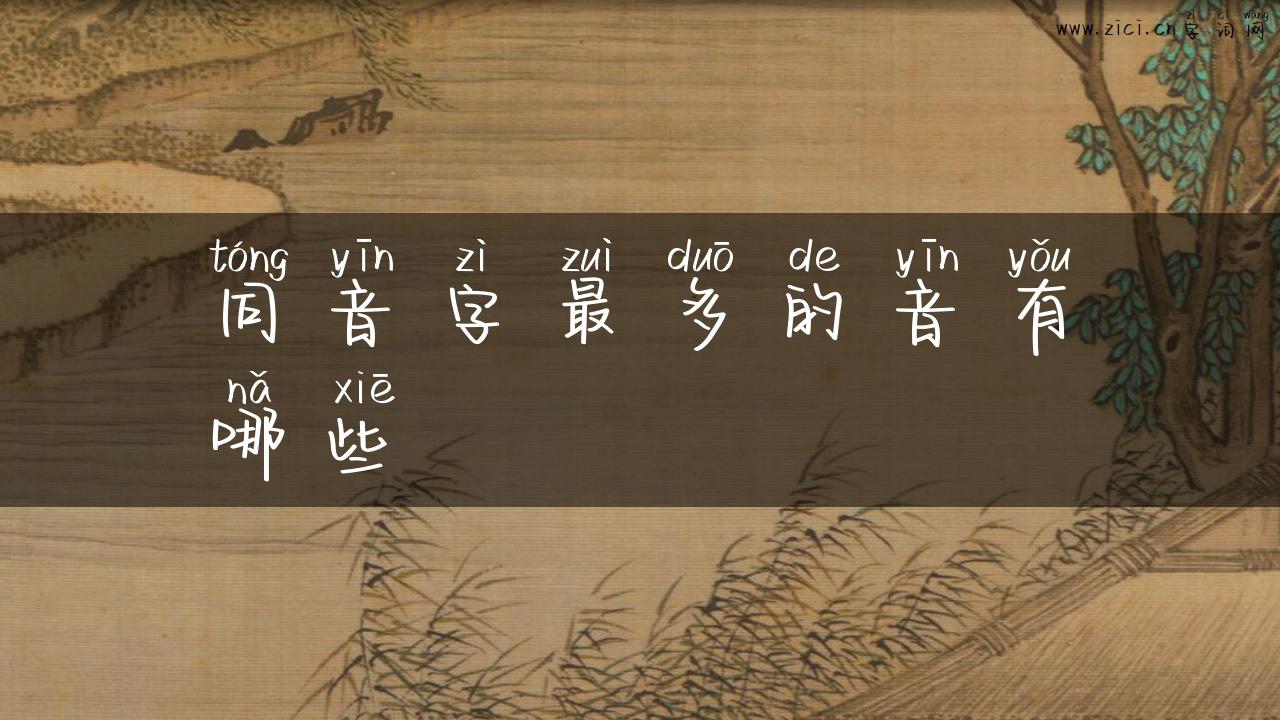 zì cí wǎng
www.zici.cn字词网
tóng yīn zì zuì duō de yīn yǒu
同音字最多的音有
nǎ xiē
哪些